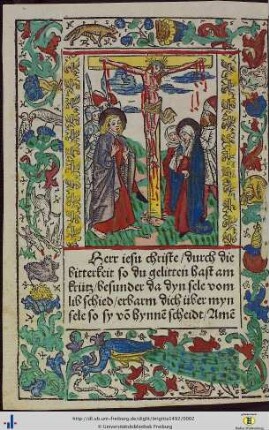 Herr iesu christe / durch die
bitterkeit so du gelitten hast am
krütz / besunder da dyn sele vom
lib schied / erbarm dich über myn
sele so sy vō hynnē scheidt / Amē
http://dl.ub.uni-freiburg.de/diglit/brigitta1492/0002
© Universitätsbibliothek Freiburg